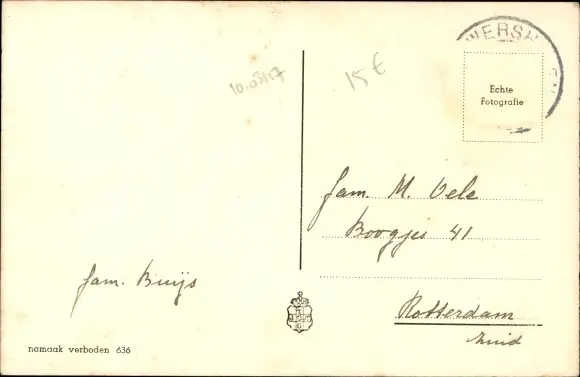 WERSH
10.03/17
15 €
Echte
Fotografie
fam. M. Vele
Boogjes 41
fam. Buijs
Rotterdam
Zuid
namaak verboden 636